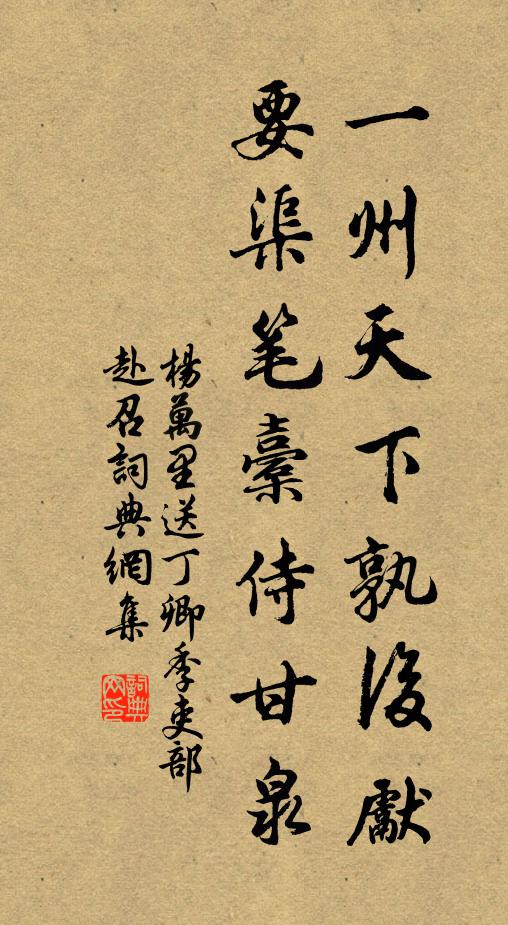 一州天下孰後獻
要渠笔橐侍甘泉
楊萬里送丁卿季吏部
赴召詞典網集
詞典
网印